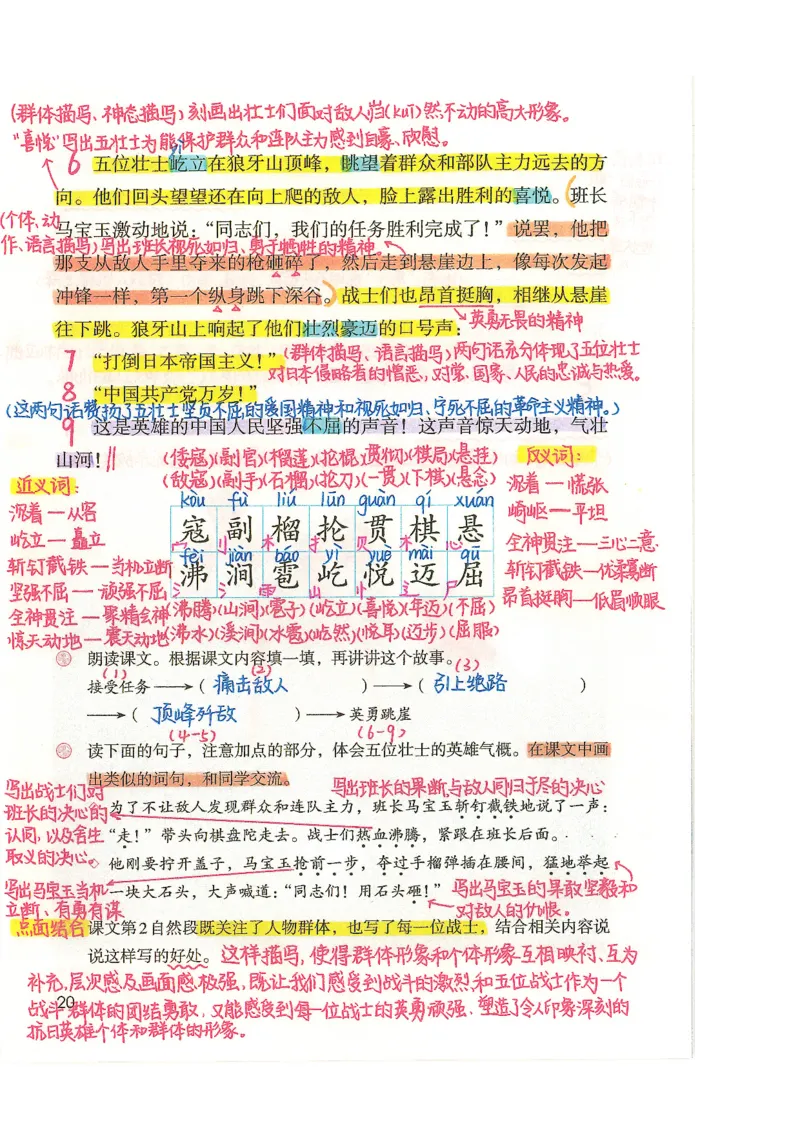 (群体描写、神态描写)刻画出壮士们面对敌人岿(kuī)然不动的高大形象。
“喜悦”写出五壮士为能保护群众和连队主力感到自豪、欣慰。
6 五位壮士屹立在狼牙山顶峰，眺望着群众和部队主力远去的方
向。他们回头望望还在向上爬的敌人，脸上露出胜利的喜悦。班长
马宝玉激动地说：“同志们，我们的任务胜利完成了！”说罢，他把
(个体、动
作、语言描写)写出班长视死如归、勇于牺牲的精神。
那支从敌人手里夺来的枪砸碎了，然后走到悬崖边上，像每次发起
冲锋一样，第一个纵身跳下深谷。战士们也昂首挺胸，相继从悬崖
英勇无畏的精神
往下跳。狼牙山上响起了他们壮烈豪迈的口号声：
7 “打倒日本帝国主义！”(群体描写、语言描写)两句话充分体现了五位壮士
对日本侵略者的憎恶，对党、国家、人民的忠诚与热爱。
8 “中国共产党万岁！”
(这两句话赞扬了五壮士坚贞不屈的爱国精神和视死如归、宁死不屈的革命主义精神。)
9 这是英雄的中国人民坚强不屈的声音！这声音惊天动地，气壮
山河！
(倭寇)(副官)(榴莲)(抡棍)(贯彻)(棋局)(悬挂)
(敌寇)(副手)(石榴)(抡刀)(一贯)(下棋)(悬念)
kòu fù liú lūn guàn qí xuán
寇 副 榴 抡 贯 棋 悬
宀 刂 木 扌 贝 木 心
fèi jiàn báo yì yuè mài qū
沸 涧 雹 屹 悦 迈 屈
氵 氵 雨 山 忄 辶 尸
(沸腾)(山涧)(雹子)(屹立)(喜悦)(年迈)(不屈)
(沸水)(溪涧)(水雹)(屹然)(悦耳)(迈步)(屈服)
近义词：
沉着—从容
屹立—矗立
斩钉截铁—当机立断
坚强不屈—顽强不屈
全神贯注—聚精会神
惊天动地—震天动地
反义词：
沉着—慌张
崎岖—平坦
全神贯注—三心二意
斩钉截铁—优柔寡断
昂首挺胸—低眉顺眼
朗读课文。根据课文内容填一填，再讲讲这个故事。
(1) (2) (3)
接受任务→( 痛击敌人 )→( 引上绝路 )
→( 顶峰歼敌 )→英勇跳崖
(4-5) (6-9)
读下面的句子，注意加点的部分，体会五位壮士的英雄气概。在课文中画
出类似的词句，和同学交流。
写出班长的果断，与敌人同归于尽的决心
写出战士们对
班长的决心的
认同，以及舍生
取义的决心。
为了不让敌人发现群众和连队主力，班长马宝玉斩钉截铁地说了一声：
“走！”带头向棋盘陀走去。战士们热血沸腾，紧跟在班长后面。
他刚要拧开盖子，马宝玉抢前一步，夺过手榴弹插在腰间，猛地举起
一块大石头，大声喊道：“同志们！用石头砸！”
写出马宝玉当机
立断、有勇有谋
写出马宝玉的果敢坚毅和
对敌人的仇恨。
点面结合
课文第2自然段既关注了人物群体，也写了每一位战士，结合相关内容说
说这样写的好处。这样描写，使得群体形象和个体形象互相映衬、互为
补充，层次感及画面感极强，既让我们感受到战斗的激烈和五位战士作为一个
战斗群体的团结勇敢，又能感受到每一位战士的英勇顽强，塑造了令人印象深刻的
抗日英雄个体和群体的形象。
20